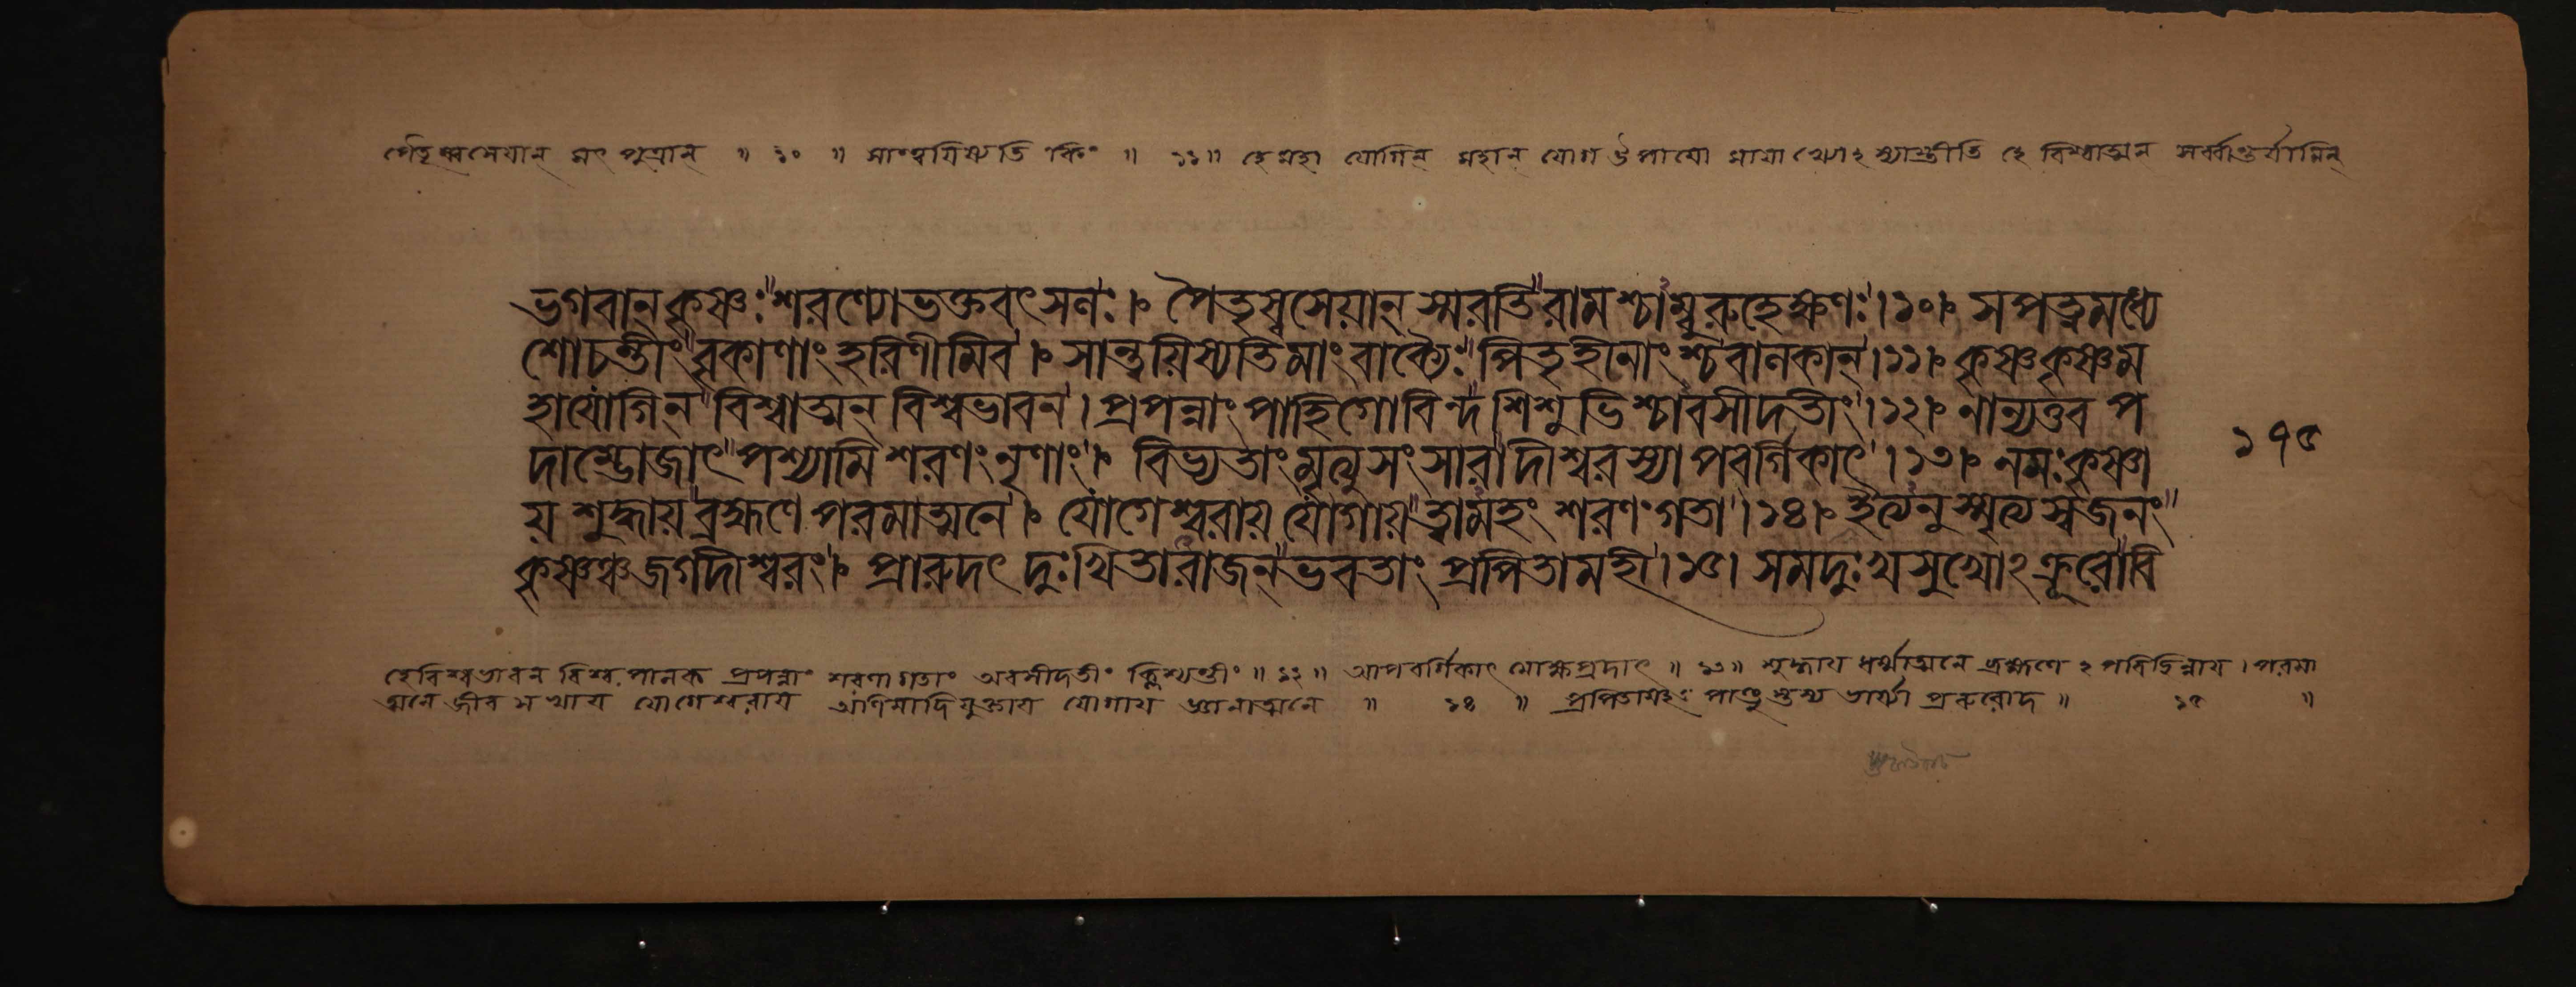 পৈতৃষ্বসেয়ান্ মৎ পুত্রান্ ॥ ১০ ॥ সান্ত্বয়িষ্যতি কিং ॥ ১১॥ হে মহা যোগিন্ মহান্ যোগ উপায়ো মায়া খ্যোঽস্যাস্তীতি হে বিশ্বাত্মন্ সর্ব্বান্তর্যামিন্
ভগবান্ কৃষ্ণঃ শরণ্যো ভক্তবৎসলঃ। পৈতৃস্বসেয়ান্ স্মরতি রামশ্চাম্বুরুহেক্ষণঃ।১০। সপত্নমধ্যে
শোচন্তীং বৃকাণাং হরিণীমিব। সান্ত্বয়িস্যেতি মাং বাক্যৈঃ পিতৃহীনাংশ্চ বালকান্।১১। কৃষ্ণ কৃষ্ণ ম
হাযোগিন্ বিশ্বাত্মন্ বিশ্বভাবন। প্রপন্নাং পাহি গোবিন্দ শিশুভিশ্চাবসীদতীং।১২। নান্যত্তব প
দাম্ভোজাৎ পশ্যামি শরণং নৃণাং। বিভ্যতাং মৃত্যুসংসারাদীশ্বরস্যাপবর্গিকাৎ।১৩। নমঃ কৃষ্ণা
১৭৫
য় শুদ্ধায় ব্রহ্মণে পরমাত্মনে। যোগেশ্বরায় যোগায় ত্বামহং শরণং গতা।১৪। ইত্যনুস্মৃত্য স্বজনং
কৃষ্ণঞ্চ জগদীশ্বরং। প্রারুদৎ দুঃখিতা রাজন্ ভবতাং প্রপিতামহী।১৫। সমদুঃখসুখোঽক্রূরো বি
হে বিশ্বভাবন বিশ্ব পালক প্রপন্নাং শরণাগতাং অবসীদতীং ক্লিশ্যন্তীং ॥ ১২ ॥ আপবর্গিকাৎ মোক্ষপ্রদাৎ ॥ ১৩ ॥ শুদ্ধায় ধর্ম্মাত্মনে ব্রহ্মণে ঽপরিচ্ছিন্নায়। পরমা
ত্মনে জীব সখায় যোগেশ্বরায় অণিমাদিযুক্তায় যোগায় জ্ঞানাত্মনে ॥ ১৪ ॥ প্রপিতামহী পাণ্ডু ভার্য্যা প্ররুরোদ ॥ ১৫ ॥